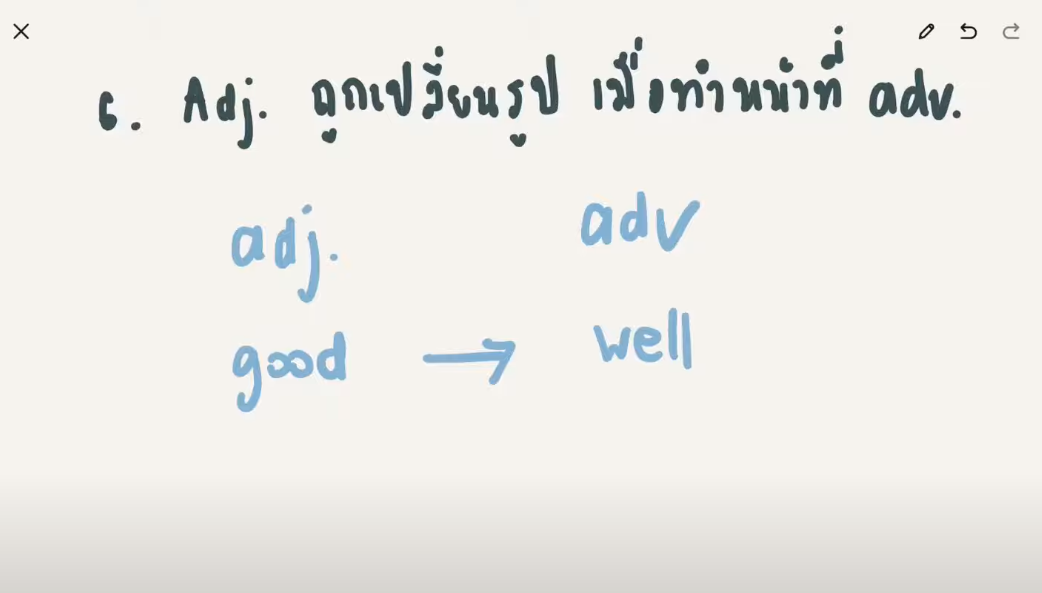 6. Adj. ถูกเปลี่ยนรูป เมื่อทำหน้าที่ adv.
adj. adv
good → well